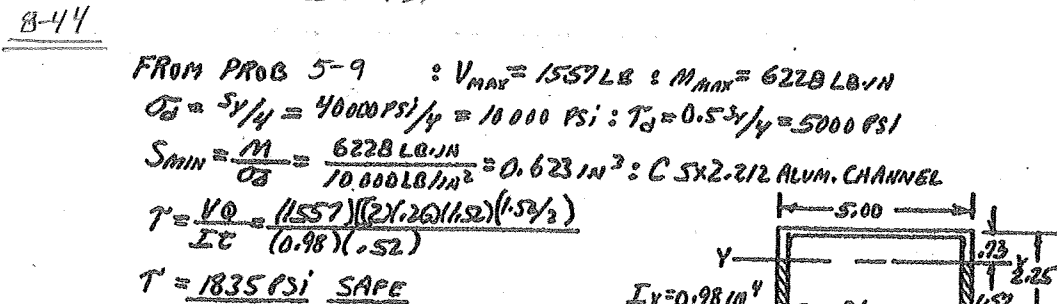 8-44
FROM PROB 5-9 : V_MAX = 1557 LB : M_MAX = 6228 LB·IN
σ_d = S_y/4 = 40000 PSI/4 = 10000 PSi : τ_d = 0.5 S_y/4 = 5000 PSI
S_MIN = M/σ_d = 6228 LB·IN / 10000 LB/IN² = 0.623 IN³ : C 5X2.212 ALUM. CHANNEL
τ = VQ/It = (1557)[(2)(.26)(1.52)(1.52/2) / (0.98)(.52)
5.00
.73
Y Y
2.25
τ = 1835 PSi SAFE
I_Y = 0.98 IN⁴
1.52